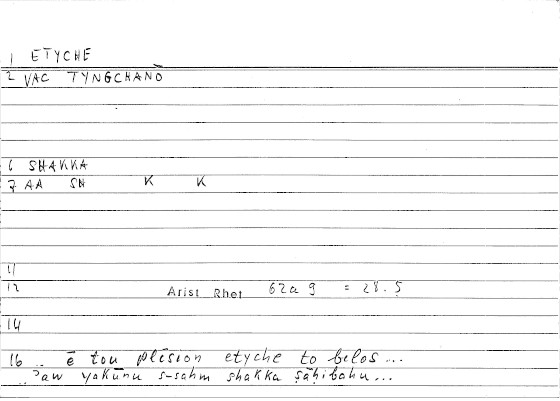 1 ETYCHE
2 VAC TYNGCHANŌ
6 SHAKKA
7 AA SH K K
11
12 Arist Rhet 62a 9 = 28.5
14
16 .. ē tou plēsion etyche to belos...
..ʾaw yakūnu s-sahm shakka ṣāḥibahu...